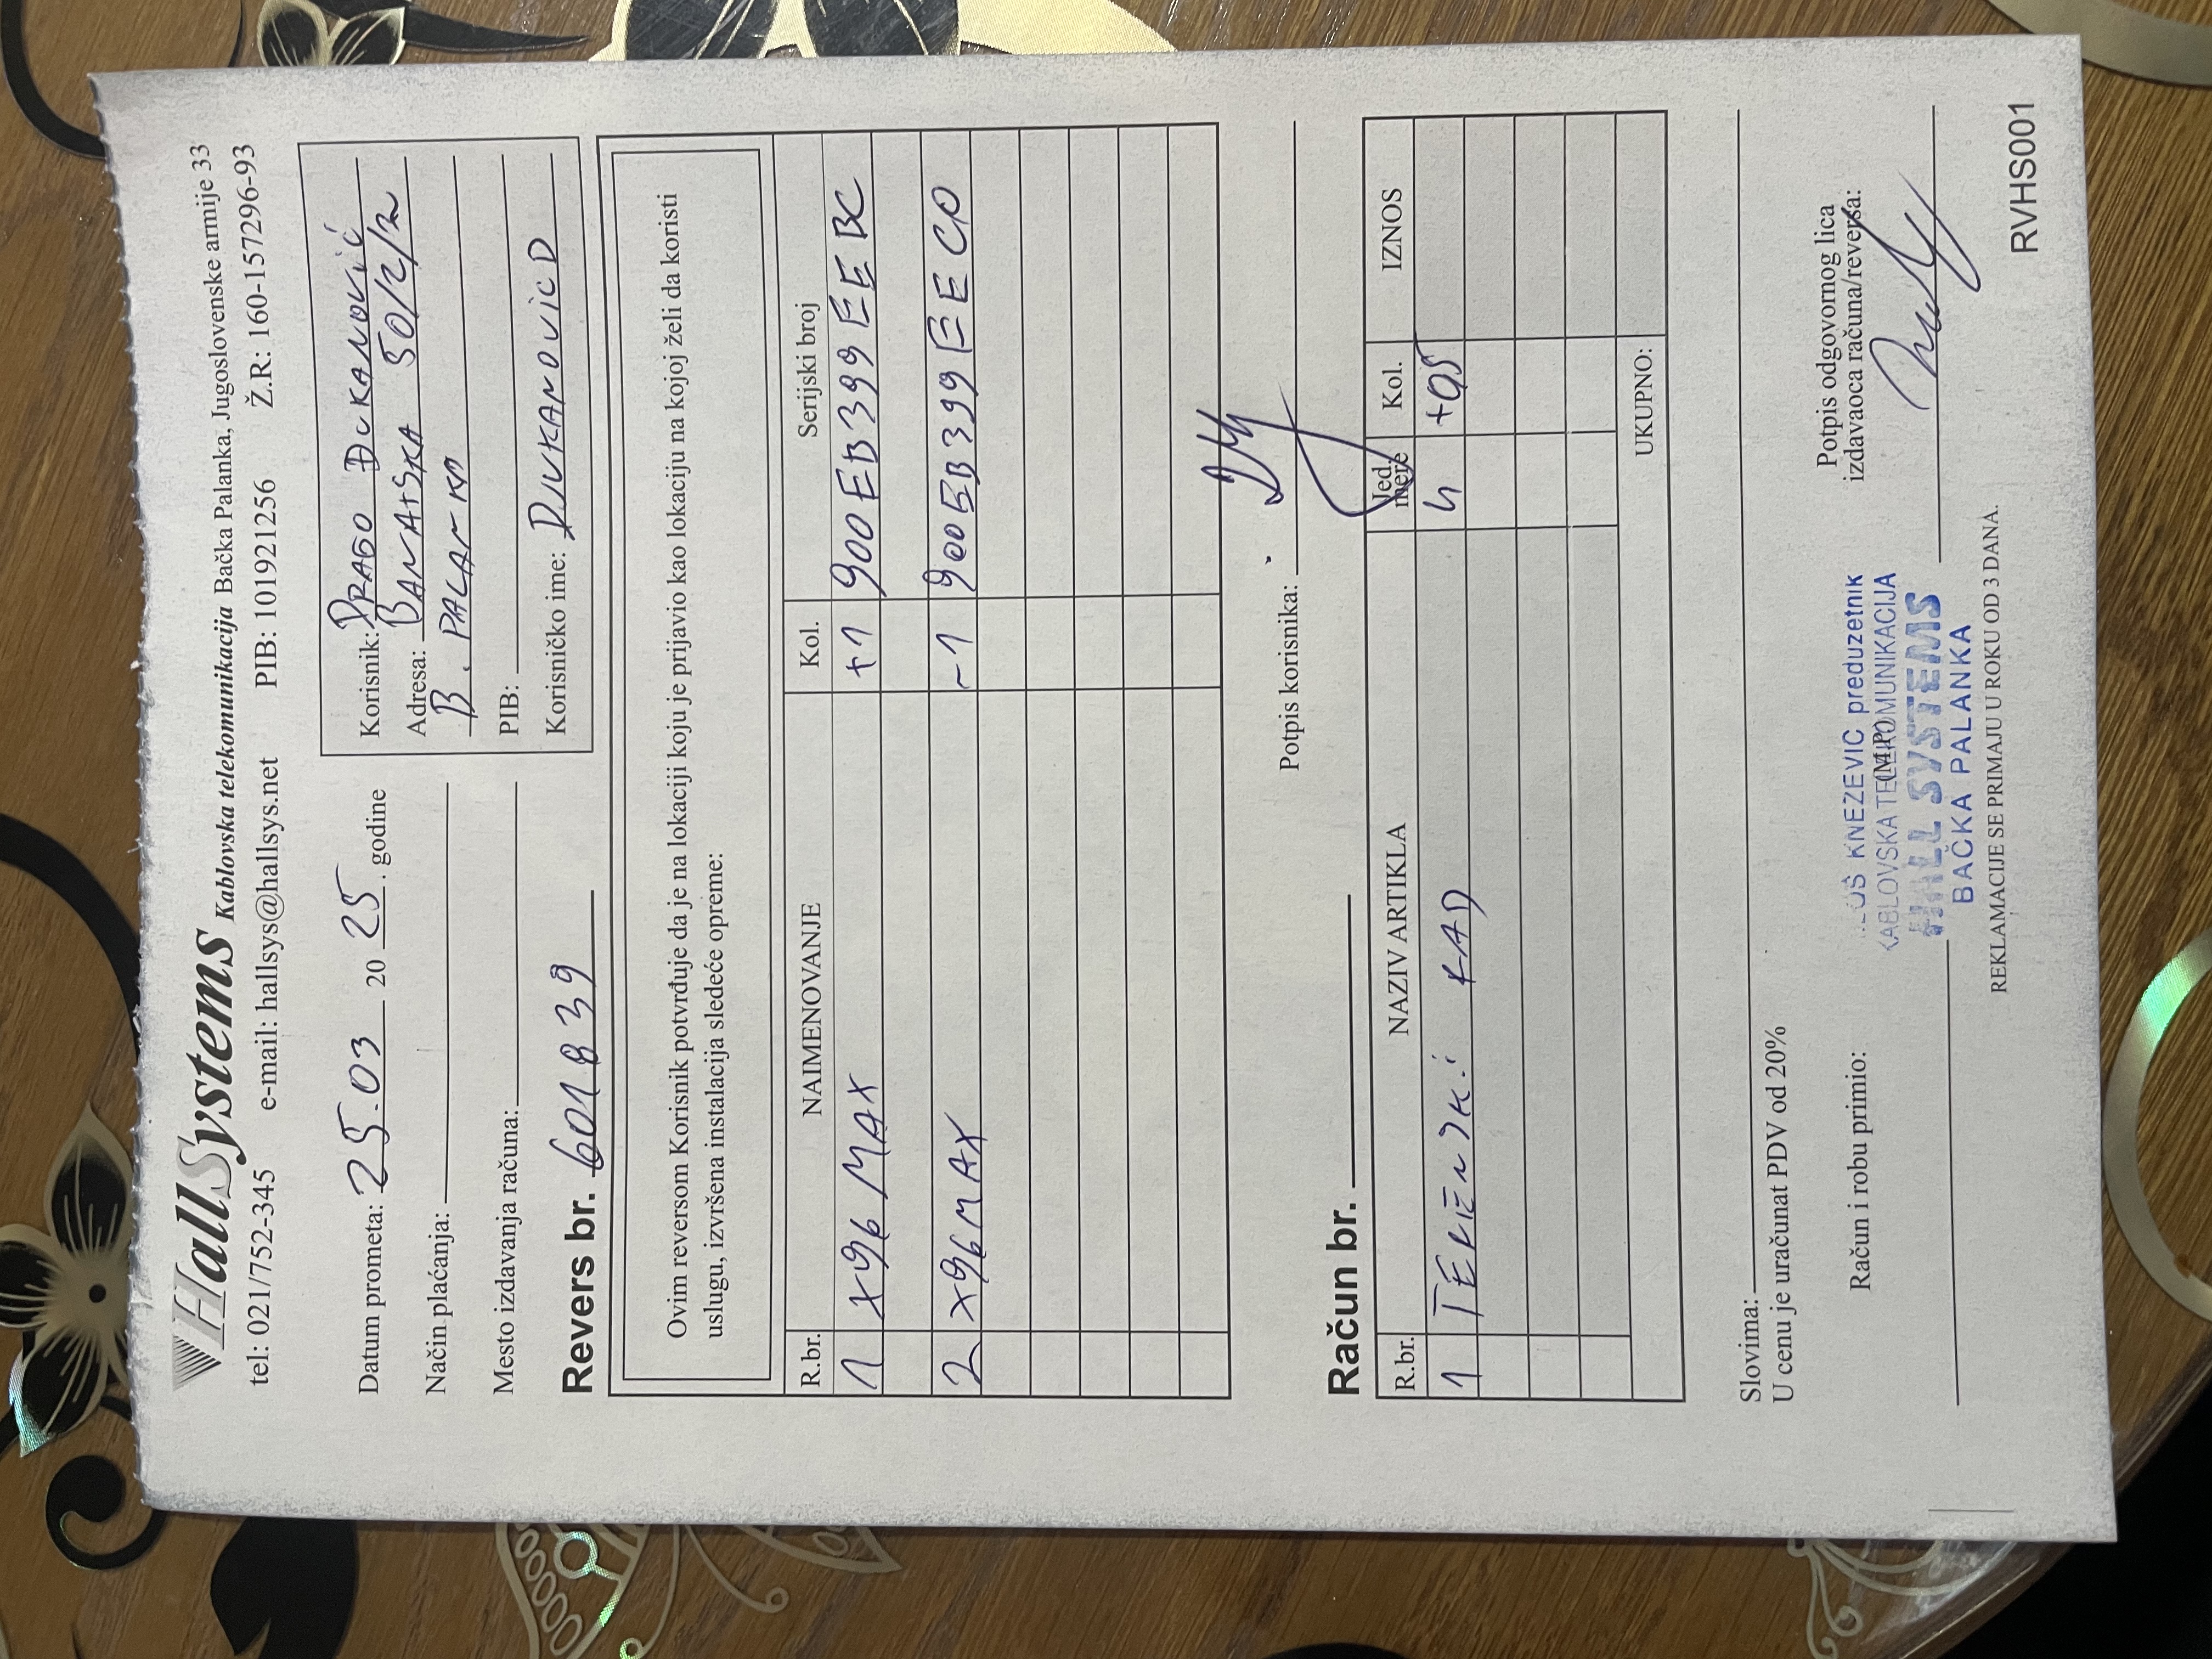 HallSystems Kablovska telekomunikacija Bačka Palanka, Jugoslovenske armije 33
tel: 021/752-345 e-mail: hallsys@hallsys.net PIB: 101921256 Ž.R: 160-157296-93
Datum prometa: 25.03 20 25. godine
Način plaćanja:
Mesto izdavanja računa:
Korisnik: DRAGO ĐUKANOVIĆ
Adresa: BANATSKA 50/2/
B. PALANKA
PIB:
Korisničko ime: DJUKANOVICD
Revers br. 601839
Ovim reversom Korisnik potvrđuje da je na lokaciji koju je prijavio kao lokaciju na kojoj želi da koristi
uslugu, izvršena instalacija sledeće opreme:
R.br. NAIMENOVANJE Kol. Serijski broj
1 X96 MAX +1 900EB399EEBC
2 X96MAX -1 900EB399EEC0
Potpis korisnika:
Račun br.
R.br. NAZIV ARTIKLA Jed. mere Kol. IZNOS
1 TERENSKI RAD h +05
UKUPNO:
Slovima:
U cenu je uračunat PDV od 20%
Račun i robu primio:
(M.P.)
KNEZEVIC preduzetnik
KABLOVSKA TELEKOMUNIKACIJA
HALL SYSTEMS
BAČKA PALANKA
Potpis odgovornog lica
izdavaoca računa/reversa:
REKLAMACIJE SE PRIMAJU U ROKU OD 3 DANA.
RVHS001